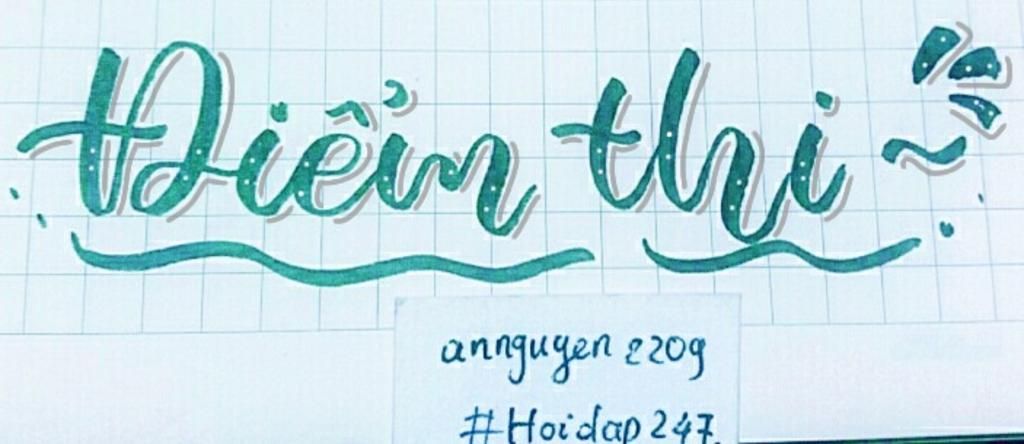 Điểm thi
annguyen 2209
#Hoidap247.